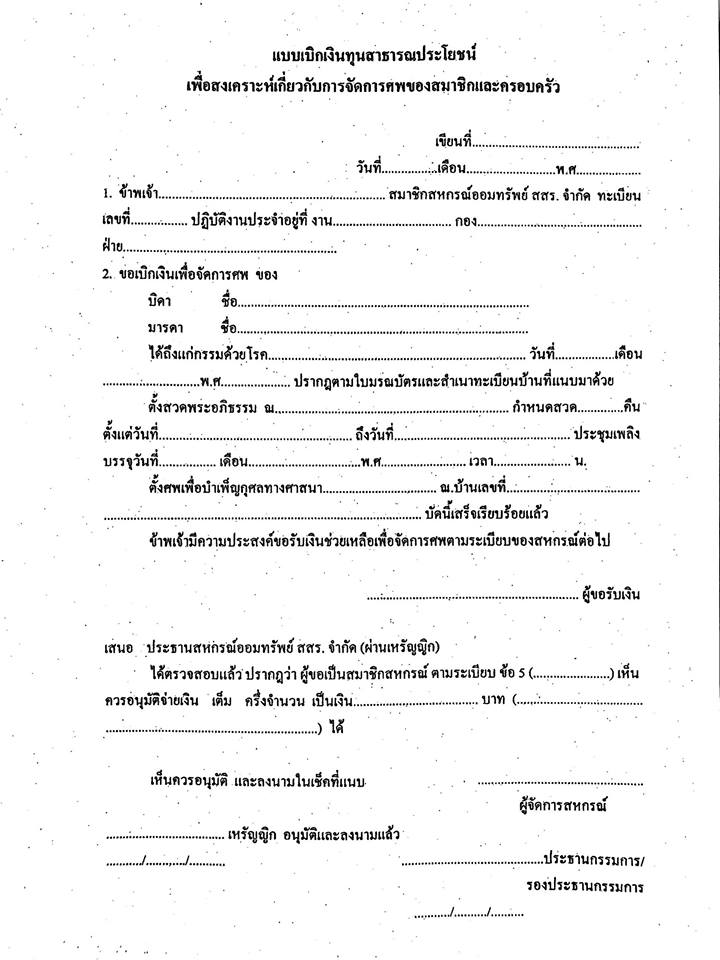 แบบเบิกเงินทุนสาธารณประโยชน์
เพื่อสงเคราะห์เกี่ยวกับการจัดการศพของสมาชิกและครอบครัว
เขียนที่....................................................
วันที่.................เดือน............................พ.ศ....................
1. ข้าพเจ้า...................................................................... สมาชิกสหกรณ์ออมทรัพย์ สสร. จำกัด ทะเบียน
เลขที่................. ปฏิบัติงานประจำอยู่ที่ งาน.................................... กอง...................................................
ฝ่าย..................................................................
2. ขอเบิกเงินเพื่อจัดการศพ ของ
บิดา ชื่อ..........................................................................................
มารดา ชื่อ..........................................................................................
ได้ถึงแก่กรรมด้วยโรค............................................................................... วันที่..................เดือน
..............................พ.ศ..................... ปรากฎตามใบมรณบัตรและสำเนาทะเบียนบ้านที่แนบมาด้วย
ตั้งสวดพระอภิธรรม ณ........................................................................ กำหนดสวด..............คืน
ตั้งแต่วันที่............................................................ ถึงวันที่...................................................... ประชุมเพลิง
บรรจุวันที่................. เดือน...................................พ.ศ.......................... เวลา........................ น.
ตั้งศพเพื่อบำเพ็ญกุศลทางศาสนา................................... ณ.บ้านเลขที่.........................................
.................................................................................................. บัดนี้เสร็จเรียบร้อยแล้ว
ข้าพเจ้ามีความประสงค์ขอรับเงินช่วยเหลือเพื่อจัดการศพตามระเบียบของสหกรณ์ต่อไป
................................................................. ผู้ขอรับเงิน
เสนอ ประธานสหกรณ์ออมทรัพย์ สสร. จำกัด (ผ่านเหรัญญิก)
ได้ตรวจสอบแล้ว ปรากฎว่า ผู้ขอเป็นสมาชิกสหกรณ์ ตามระเบียบ ข้อ 5 (.......................) เห็น
ควรอนุมัติจ่ายเงิน เต็ม ครึ่งจำนวน เป็นเงิน...................................... บาท (.......................................
.................................................................) ได้
เห็นควรอนุมัติ และลงนามในเช็คที่แนบ ...................................................
ผู้จัดการสหกรณ์
.................................... เหรัญญิก อนุมัติและลงนามแล้ว
.........../............/........... ............................................ประธานกรรมการ/
รองประธานกรรมการ
.........../........../..........